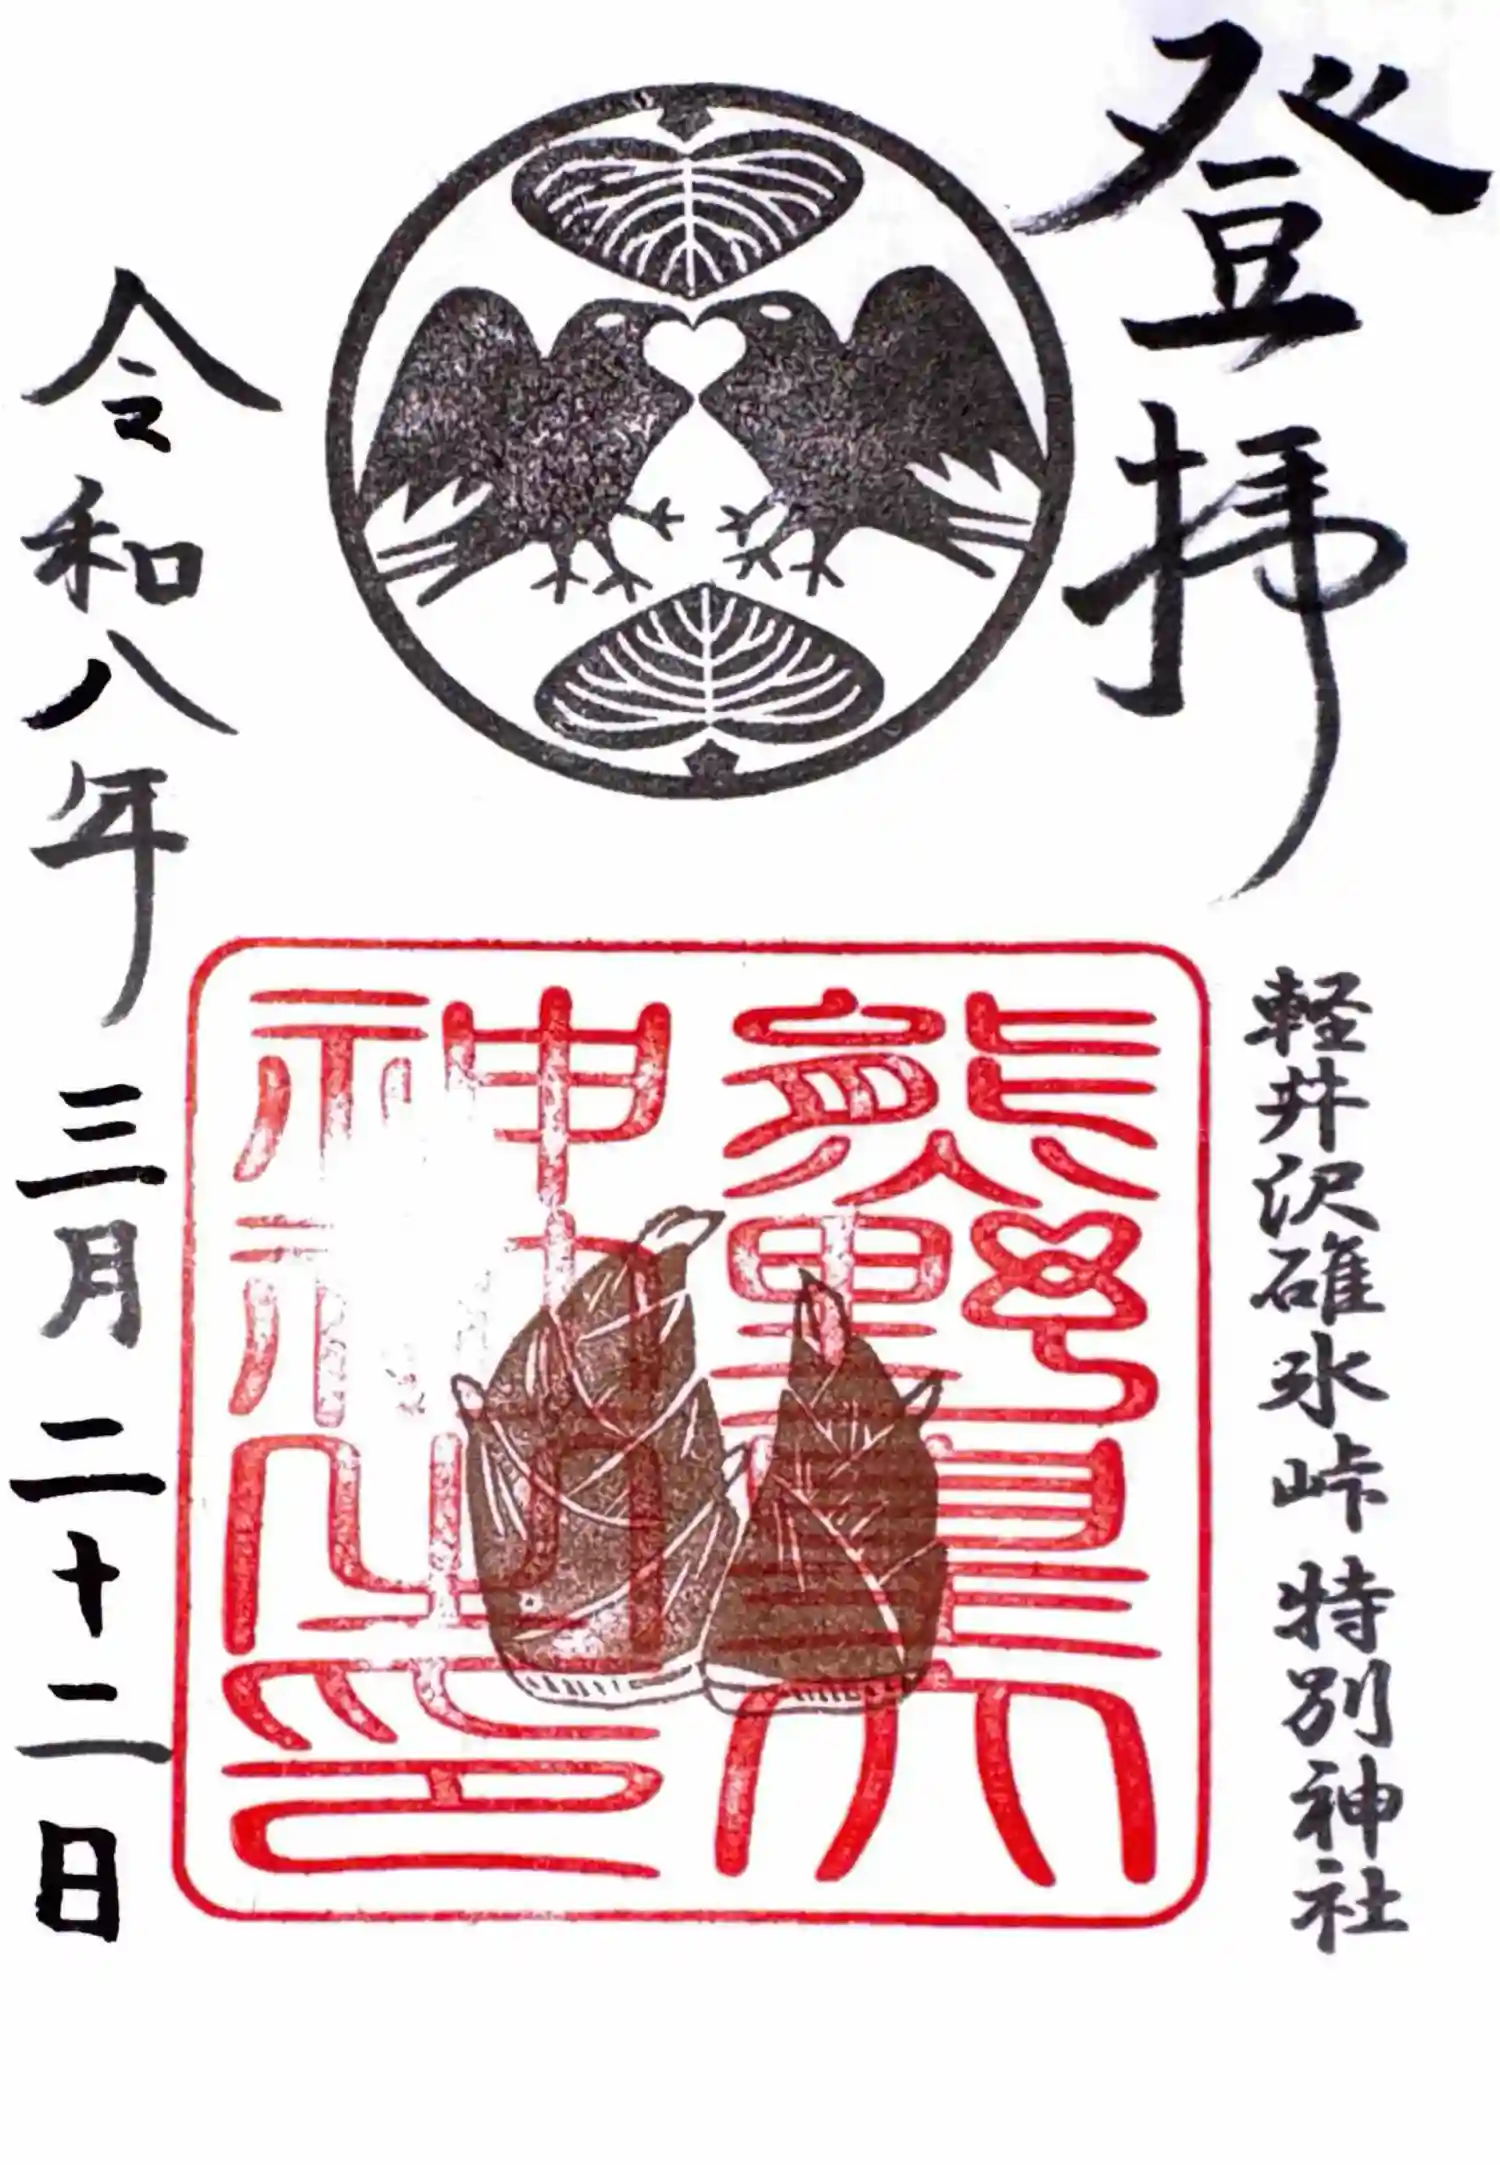 登拝
軽井沢碓氷峠 特別神社
熊野皇大
神社之印
令和八年 三月 二十二日